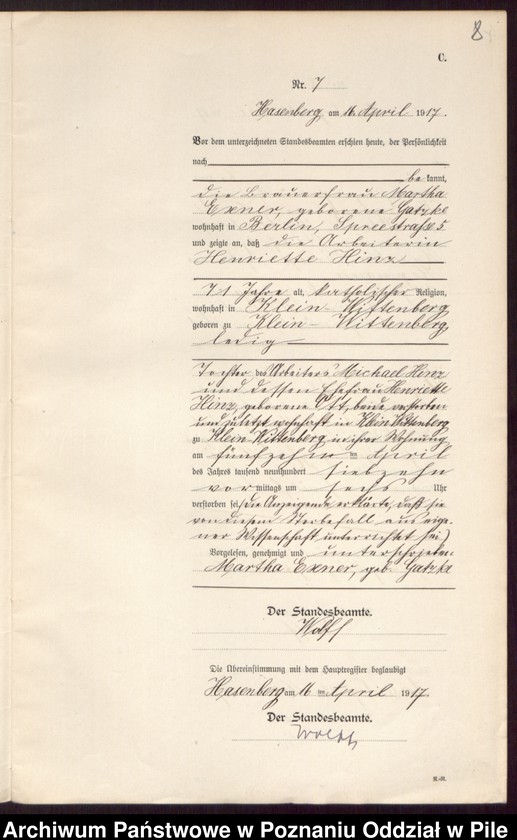 8
C.
Nr. 7
Hasenberg, am 16. April 1917.
Vor dem unterzeichneten Standesbeamten erschien heute, der Persönlichkeit
nach
bekannt,
die Brauerfrau Martha
Exner, geborene Gatzke
wohnhaft in Berlin, Spreestraße 5
und zeigte an, daß die Arbeiterin
Henriette Hinz
71 Jahre alt, katholischer Religion,
wohnhaft in Klein-Wittenberg
geboren zu Klein-Wittenberg,
ledig
Tochter des Arbeiters Michael Hinz
und dessen Ehefrau Henriette
Hinz, geborene Ott, beide verstorben
und zuletzt wohnhaft in Klein Wittenberg
zu Klein-Wittenberg in ihrer Wohnung
am fünfzehn ten April
des Jahres tausend neunhundert siebzehn
vor mittags um sechs Uhr
verstorben sei. (Die Anzeigende erklärte, daß sie
von diesem Sterbefall aus eige-
ner Wissenschaft unterrichtet sei)
Vorgelesen, genehmigt und unterschrieben
Martha Exner, geb. Gatzke
Der Standesbeamte.
Wolff
Die Übereinstimmung mit dem Hauptregister beglaubigt
Hasenberg am 16 ten April 1917.
Der Standesbeamte.
Wolff
K.-R.
Archiwum Państwowe w Poznaniu Oddział w Pile